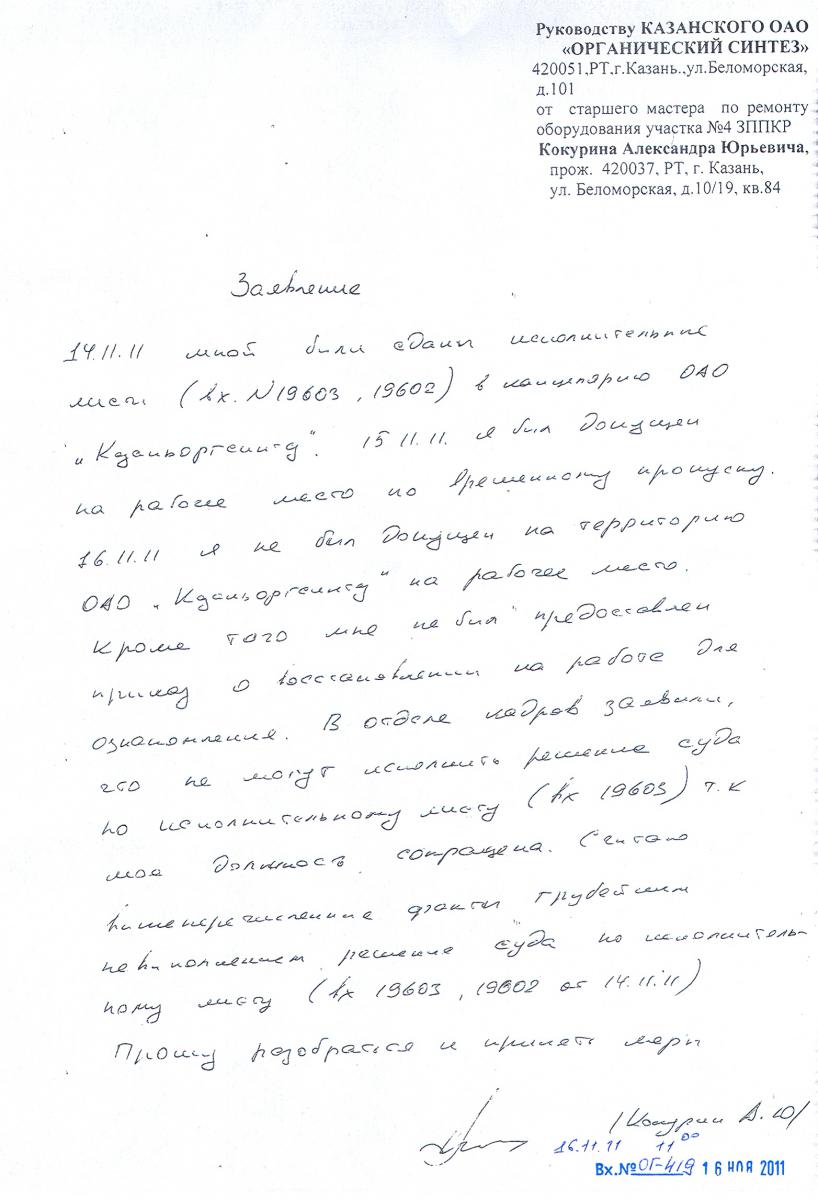 Руководству КАЗАНСКОГО ОАО
«ОРГАНИЧЕСКИЙ СИНТЕЗ»
420051,РТ,г.Казань.,ул.Беломорская,
д.101
от старшего мастера по ремонту
оборудования участка №4 ЗППКР
Кокурина Александра Юрьевича,
прож. 420037, РТ, г. Казань,
ул. Беломорская, д.10/19, кв.84
Заявление
14.11.11 мной были сданы исполнительные
листы (вх. N19603, 19602) в канцелярию ОАО
„Казаньоргсинтез". 15.11.11. я был допущен
на рабочее место по временному пропуску.
16.11.11 я не был допущен на территорию
ОАО „Казаньоргсинтез" на рабочее место.
Кроме того мне не был предоставлен
приказ о восстановлении на работе для
ознакомления. В отделе кадров заявили,
что не могут исполнить решение суда
по исполнительному листу (вх 19603) т.к
моя должность сокращена. Считаю
вышеперечисленные факты грубейшим
невыполнением решение суда по исполнитель-
ному листу (вх 19603, 19602 от 14.11.11)
Прошу разобраться и принять меры
/Кокурин А.Ю/
16.11.11 11 00
Вх.№ОГ-419 16 НОЯ 2011